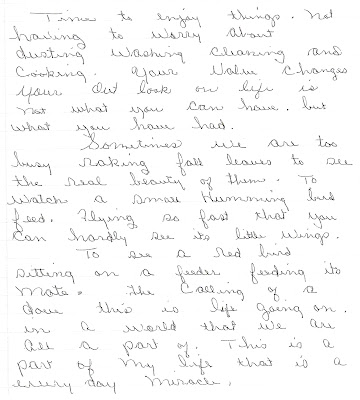 Time to enjoy things. Not
having to worry about
dusting washing cleaning and
cooking. Your value changes
your out look on life is
not what you can have. but
what you have had.
Sometimes we are too
busy raking fall leaves to see
the real beauty of them. To
watch a small Humming bird
feed. Flying so fast that you
can hardly see its little wings.
To see a red bird
sitting on a feeder feeding its
mate. The calling of a
dove this is life going on.
in a world that we are
all a part of. This is a
part of my life that is a
every day miracle.